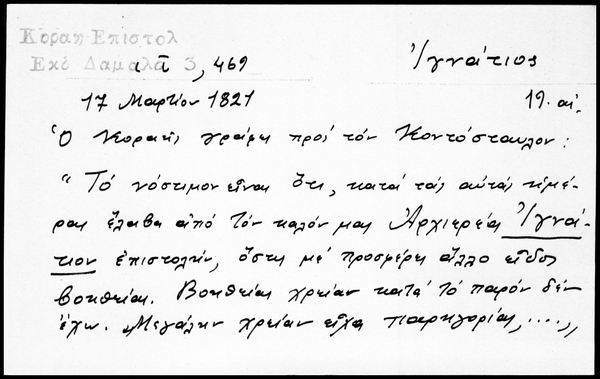 Κοραη Επιστολ
Εκδ Δαμαλα 3, 469 Ἰγνάτιος
17 Μαρτίου 1821 19. αἰ.
Ὁ Κοραῆς γράφει πρός τόν Κοντόσταυλον:
"Τό νόστιμον εἶναι ὅτι, κατά τάς αὐτάς ἡμέ-
ρας ἔλαβα ἀπό τόν καλόν μας Ἀρχιερέα Ἰγνά-
τιον ἐπιστολήν, ὅστις μέ προσφέρει ἄλλο εἶδος
βοηθείας. Βοηθείας χρείαν κατά τό παρόν δέν
ἔχω. Μεγάλην χρείαν εἶχα παρηγορίας,....,,